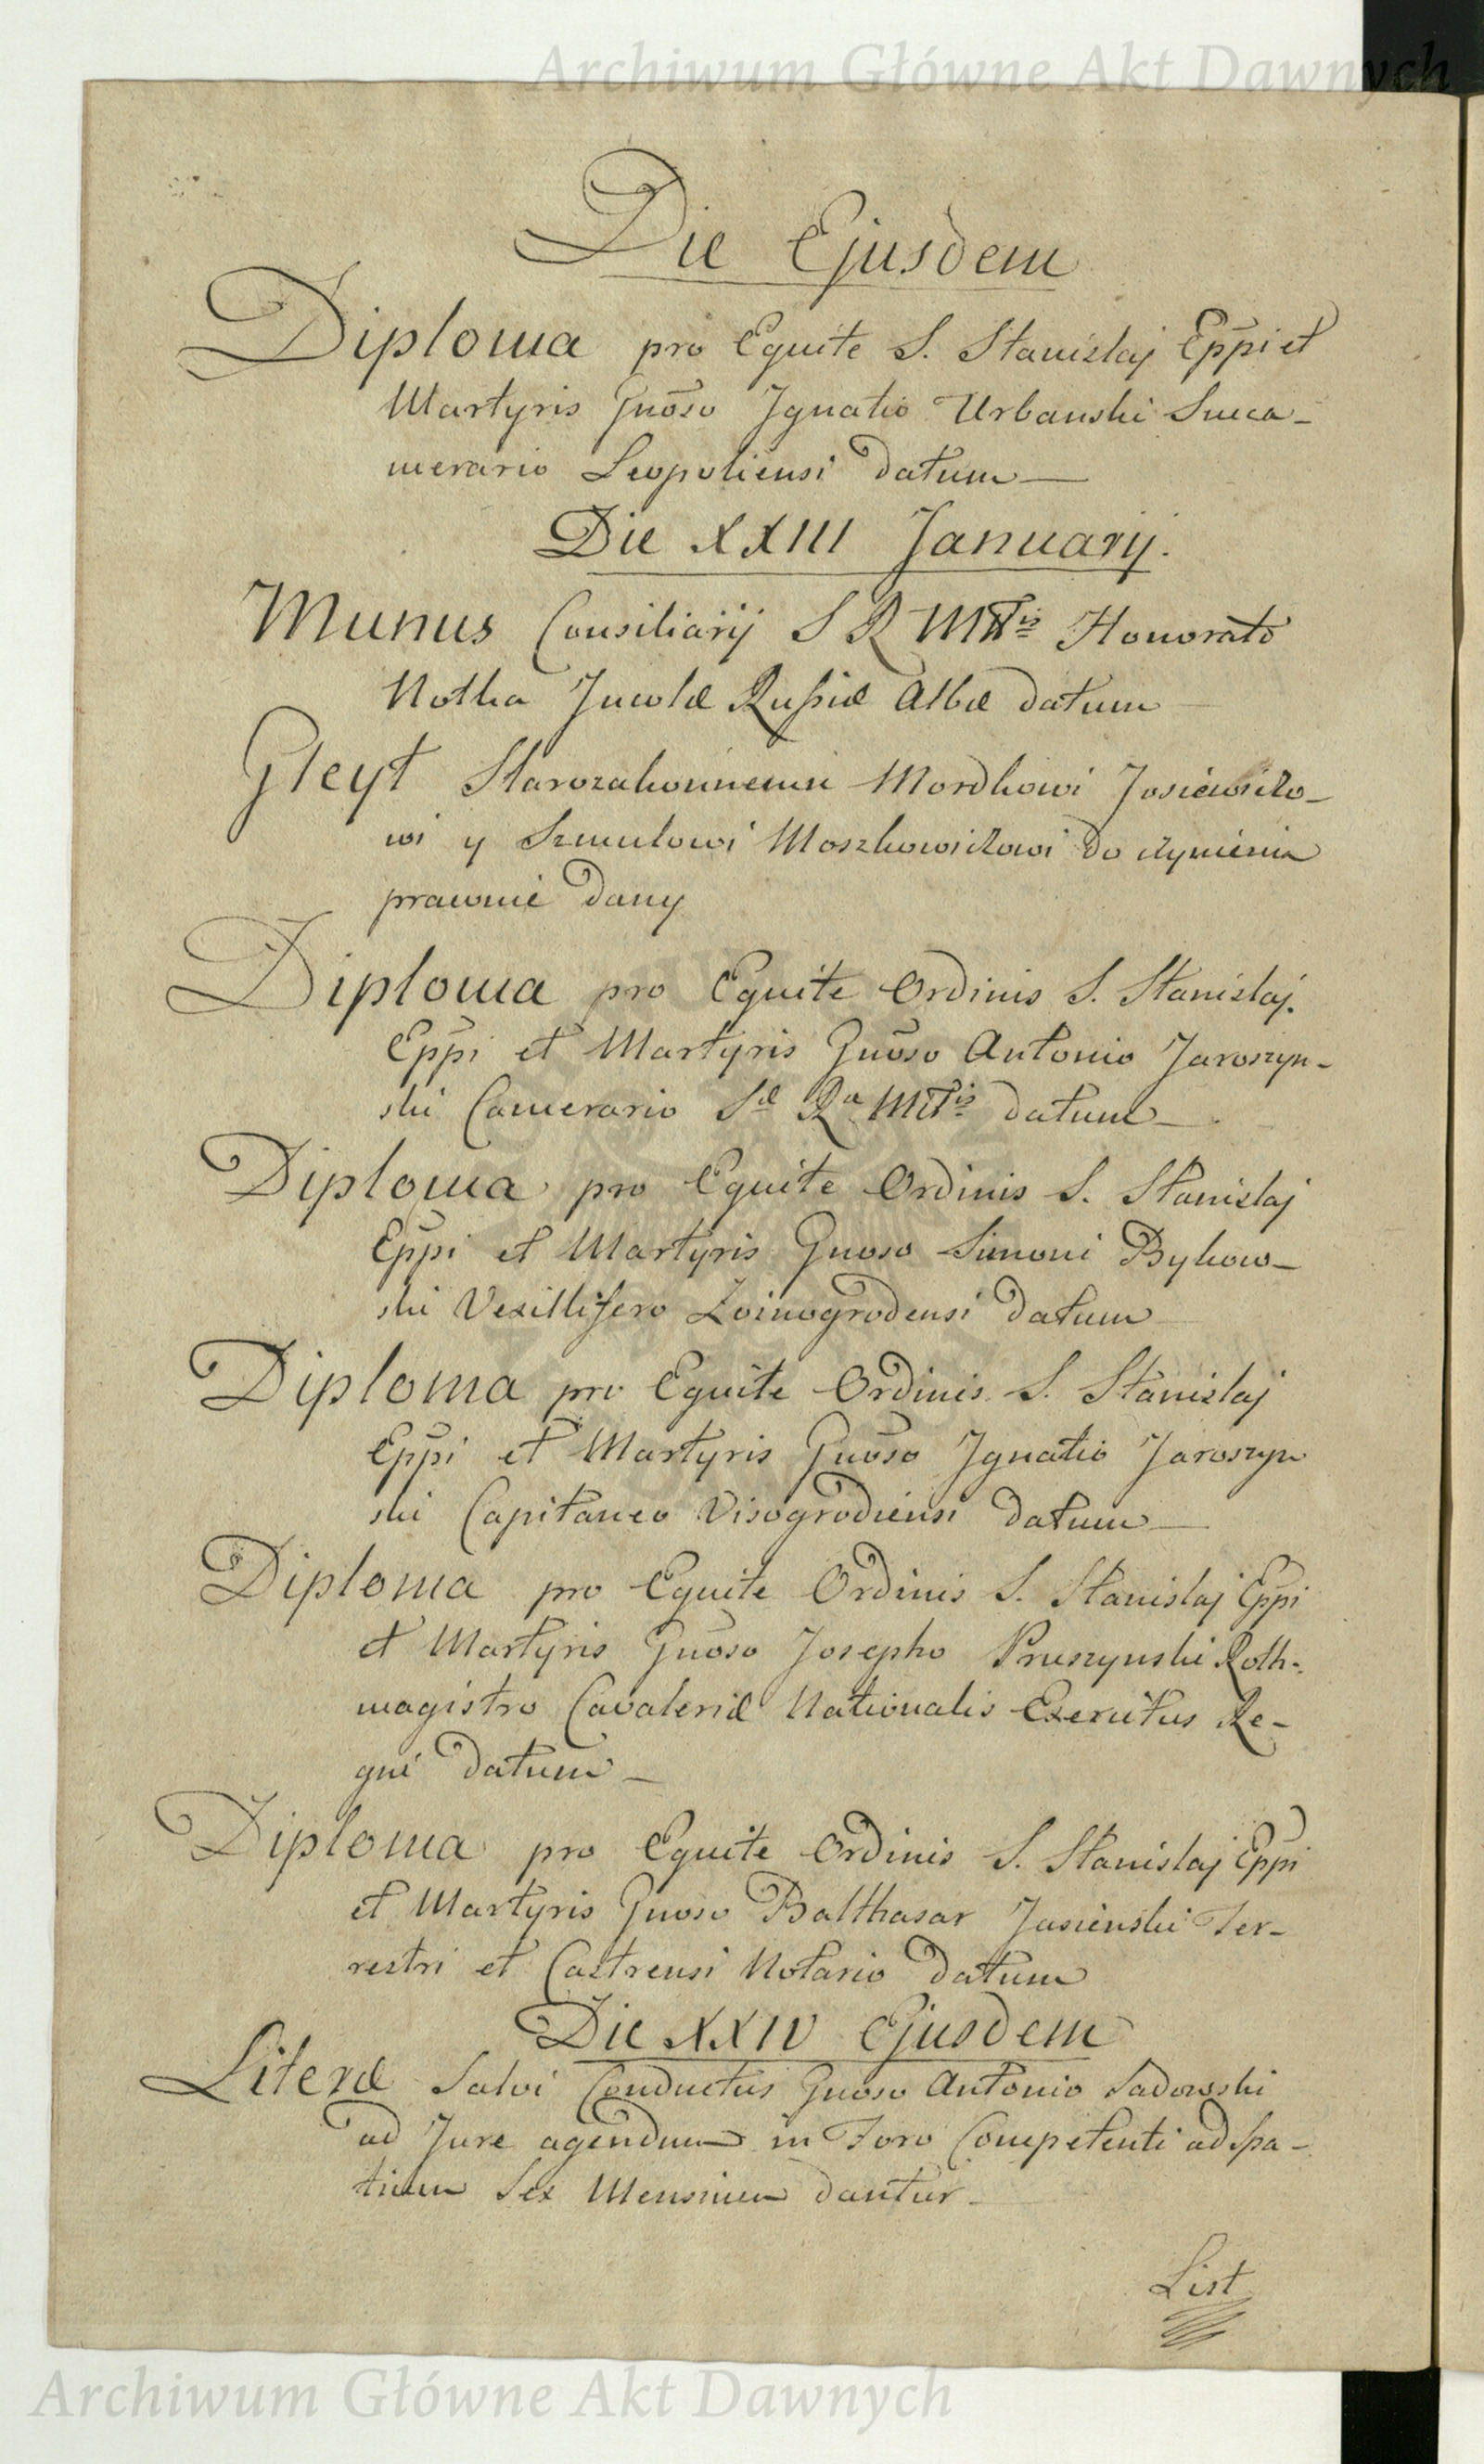 Archiwum Główne Akt Dawnych
Die Ejusdem
Diploma pro Equite S. Stanislaj Eppi et
Martyris Gnoso Jgnatio Urbanski Succa-
merario Leopoliensi datum
Die XXIII Januarij.
Munus Consiliarij S R Mttis Honorato
Notka Jncolæ Russiæ Albæ datum
Gleyt Starozakonnemu Mordkowi Josiewiczo-
wi y Szmulowi Moszkowiczowi do czynienia
prawnie dany
Diploma pro Equite Ordinis S. Stanislaj.
Eppi et Martyris Gnoso Antonio Jaroszyn-
ski Camerario Sæ Ra Mttis datum
Diploma pro Equite Ordinis S. Stanislaj
Eppi et Martyris Gnoso Simoni Bykow-
ski Vexillifero Zwinogrodensi datum
Diploma pro Equite Ordinis S. Stanislaj
Eppi et Martyris Gnoso Jgnatio Jaroszyn
ski Capitaneo Visogrodiensi datum
Diploma pro Equite Ordinis S. Stanislaj Eppi
et Martyris Gnoso Josepho Pruszynski Roth-
magistro Cavaleriæ Nationalis Exercitus Re-
gni datum
Diploma pro Equite Ordinis S. Stanislaj Eppi
et Martyris Gnoso Balthasar Jasienski Ter-
restri et Castrensi Notario datum
Die XXIV Ejusdem
Literæ Salvi Conductus Gnoso Antonio Sadowski
ad Jure agendum in Foro Competenti ad spa-
tium Sex Mensium dantur
List
Archiwum Główne Akt Dawnych